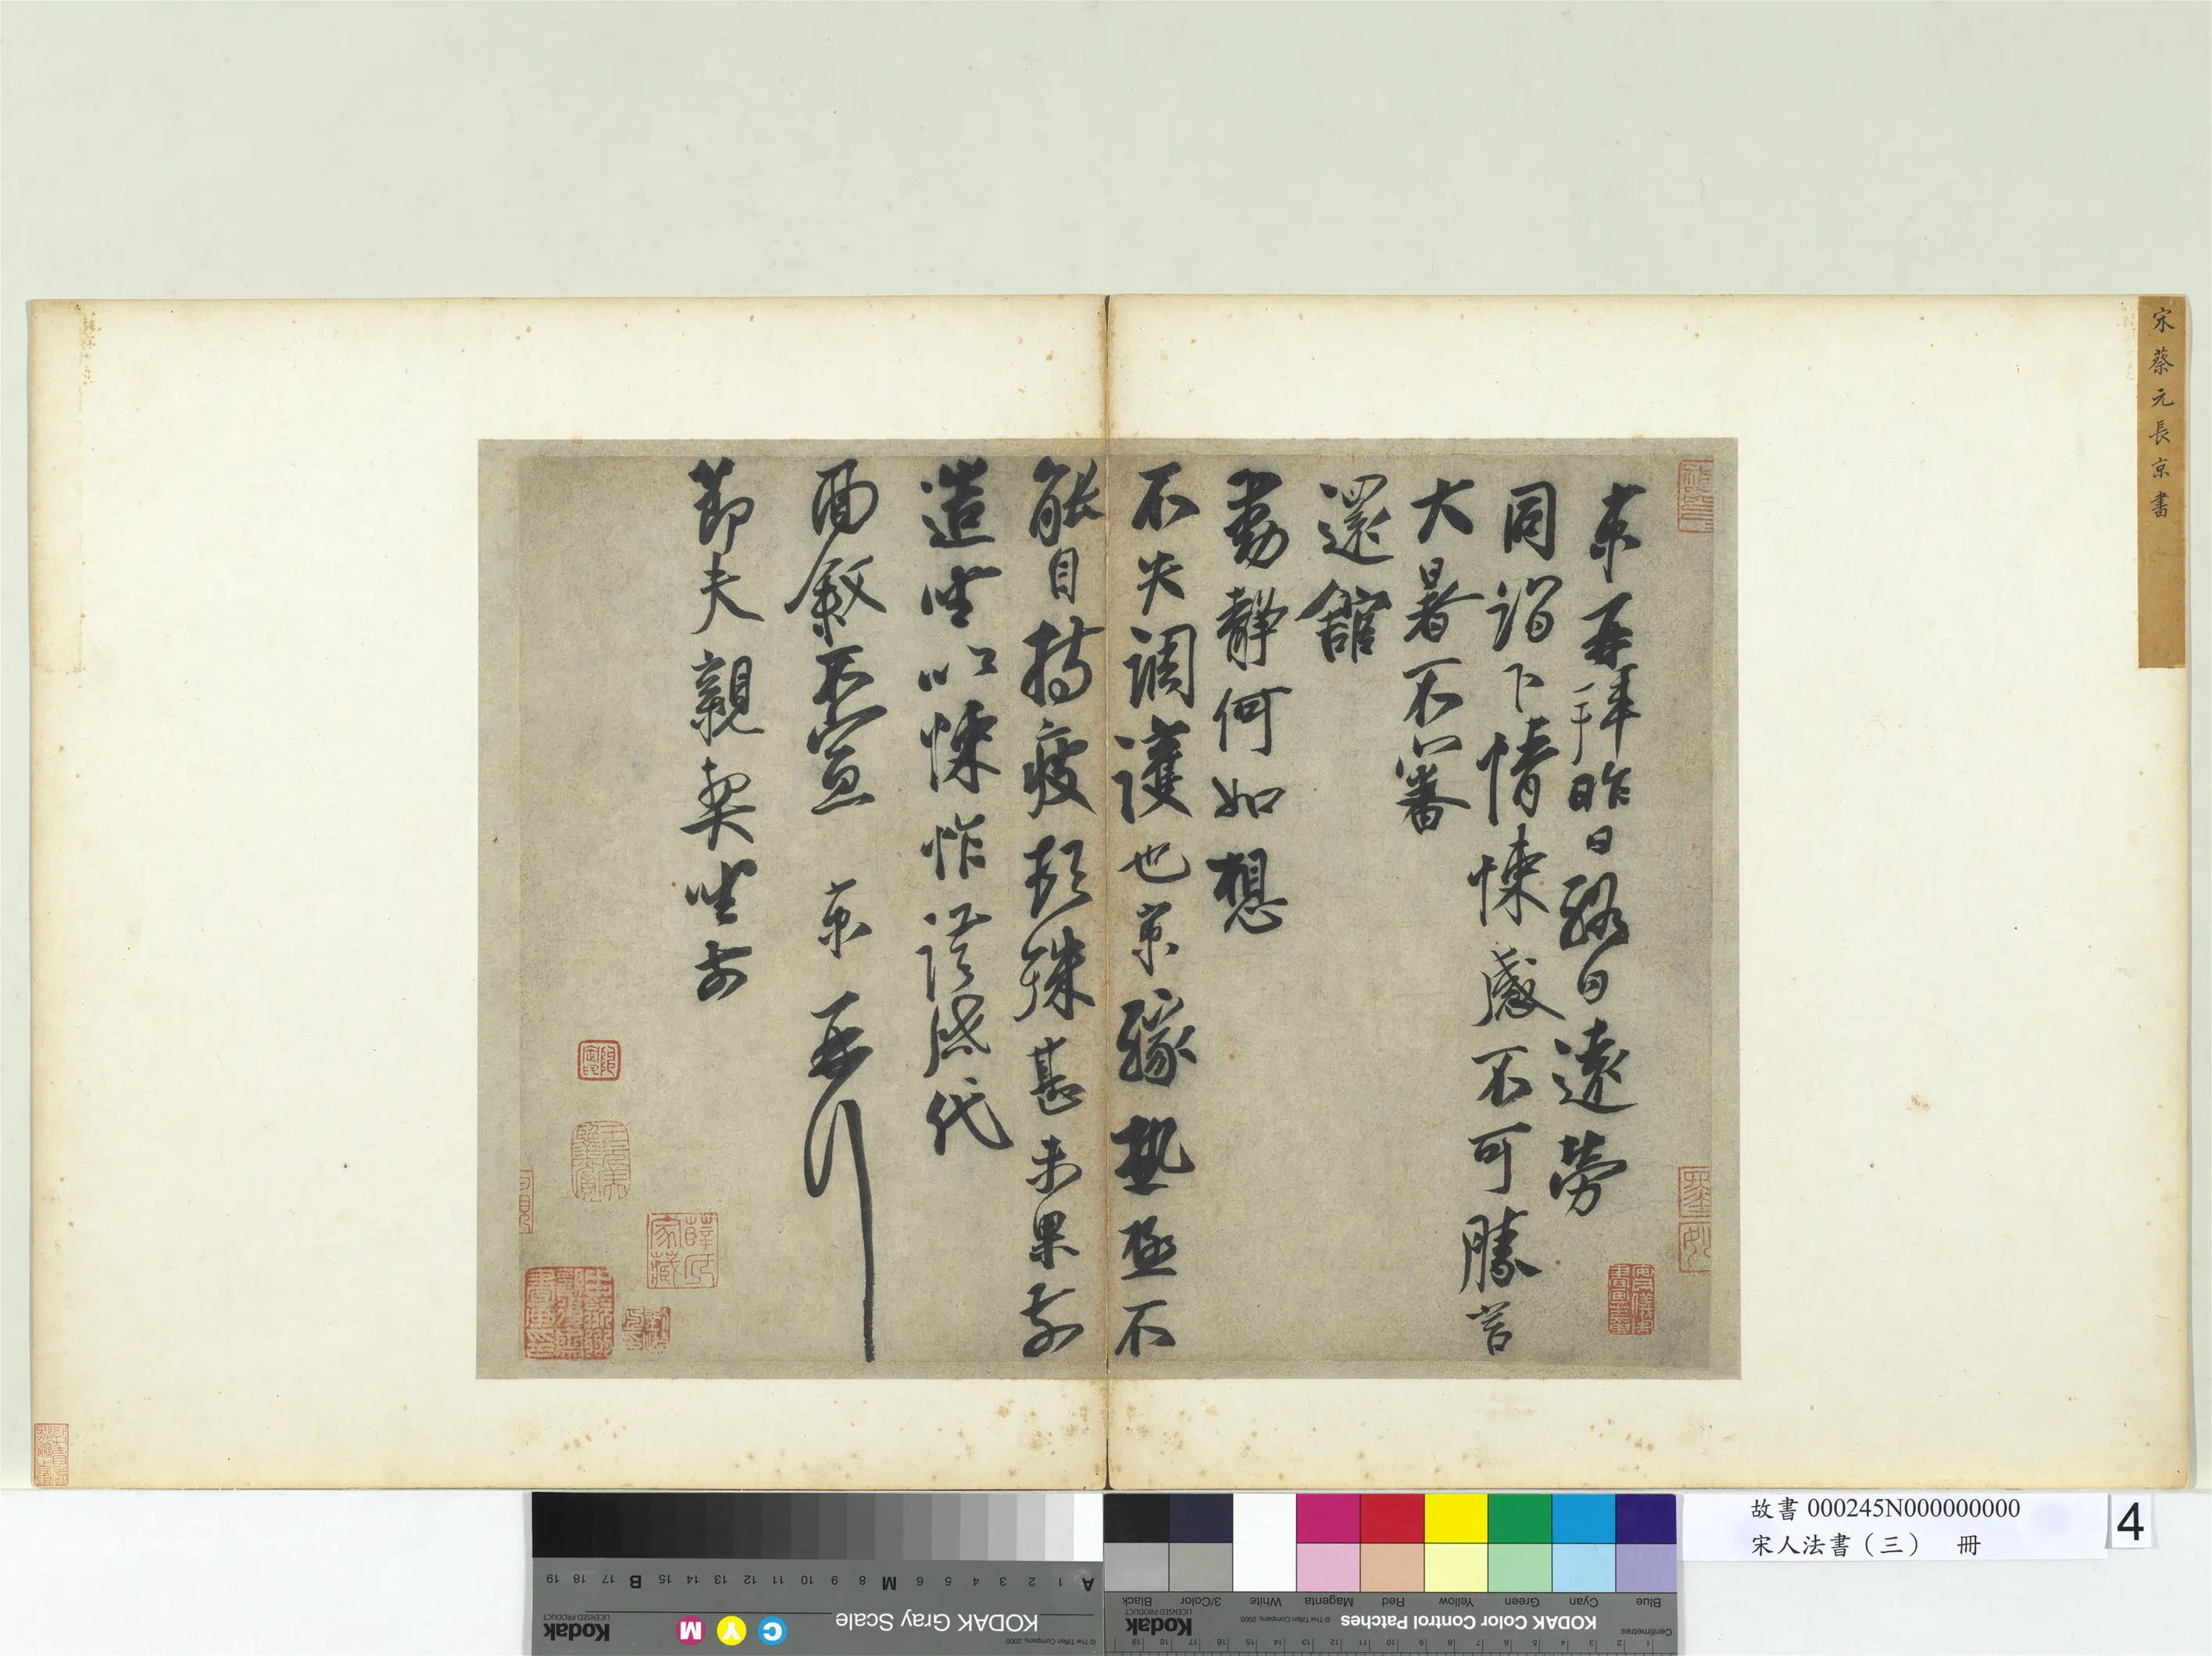 宋蔡元長京書
京再拜昨日終日遠勞
同詣下情悚感不可勝言
大暑不審
還館
動靜何如想
不失調護也京緣熱極不
能自持疲頓殊甚未果前
造坐以悚怍謹啟代
面敘不宣 京再拜
節夫親契坐前
薛氏家藏
故書 000245N000000000
宋人法書（三） 冊
4
KODAK Gray Scale
Kodak
LICENSED PRODUCT
© The Tiffen Company, 2000
C Y M
A 1 2 3 4 5 6 M 8 9 10 11 12 13 14 15 B 17 18 19
KODAK Color Control Patches
Kodak
LICENSED PRODUCT
© The Tiffen Company, 2000
Blue Cyan Green Yellow Red Magenta White 3/Color Black
Centimetres